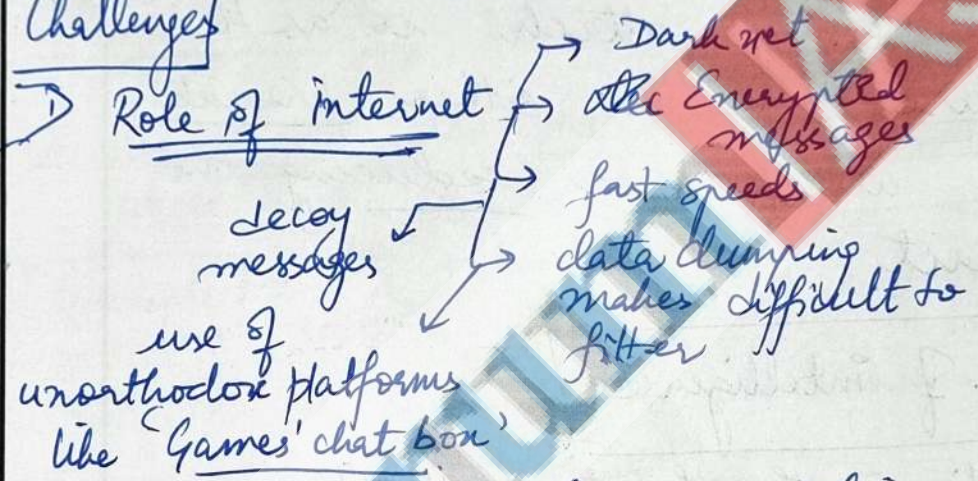 Challenges
1) Role of internet
Dark net
Encrypted
messages
fast speeds
data dumping
makes difficult to
filter
decoy
messages
use of
unorthodox platforms
like 'Games' chat box'